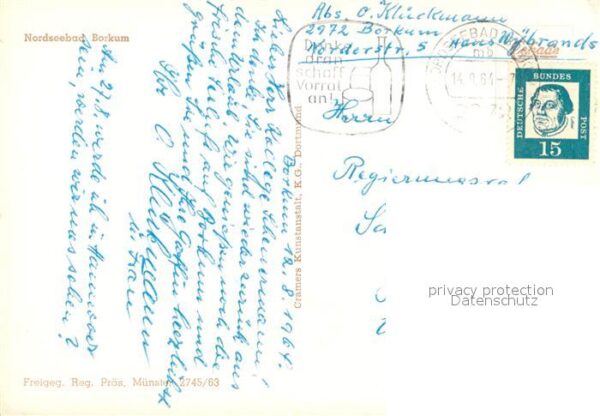 Nordseebad Borkum
Abs. O. Klückmann
2972 Borkum
Norderstr. 5 / Haus Wybrands
Denke
dran
schaff
Vorrat
an!
NORDSEEBAD
14.8.64
DEUTSCHE BUNDESPOST
15
Herrn
Regierungsrat
privacy protection
Datenschutz
Borkum 12.8.1964.
Lieber Herr Kollege
Ich hoffe, Sie sind wieder zurück aus
dem Urlaub. Wir genießen noch die
frische Seeluft auf Borkum und
grüßen Sie und Ihre Gattin herzlichst
Ihr O. Klückmann
u. Frau
Am 27.8. werde ich in Hannover
sein, werden wir uns sehen?
Cramers Kunstanstalt, K.G., Dortmund
Freigeg. Reg. Präs. Münster 2745/63